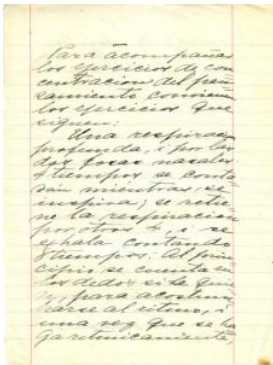 Para acompañar
los ejercicios de con
centracion del pen
samiento convienen
los ejercicios que
siguen:
Una respiracion
profunda, i por las
dos fosas nasales.
4 tiempos se conta
ran mientras se
inspira; se retie
ne la respiracion
por otros 4, i se
exhala contando
8 tiempos. Al prin
cipio se cuenta en
los dedos si se quie
re, para acostum
brarse al ritmo, i
una vez que se ha
ga ritmicamente,